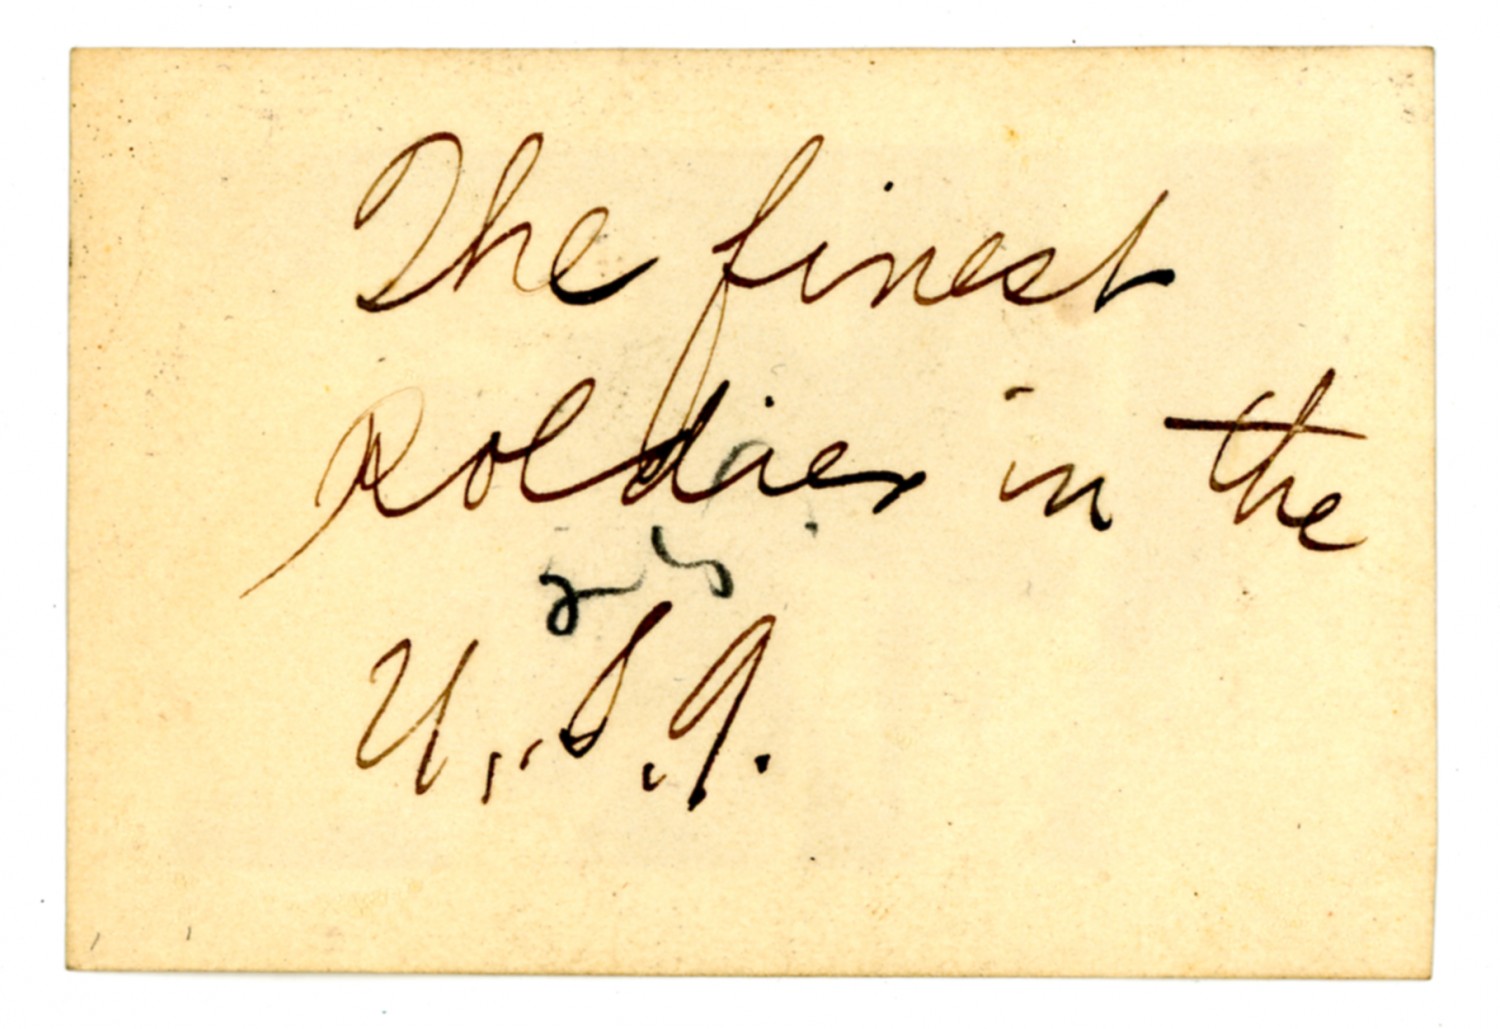 The finest
soldier in the
U.S.A.